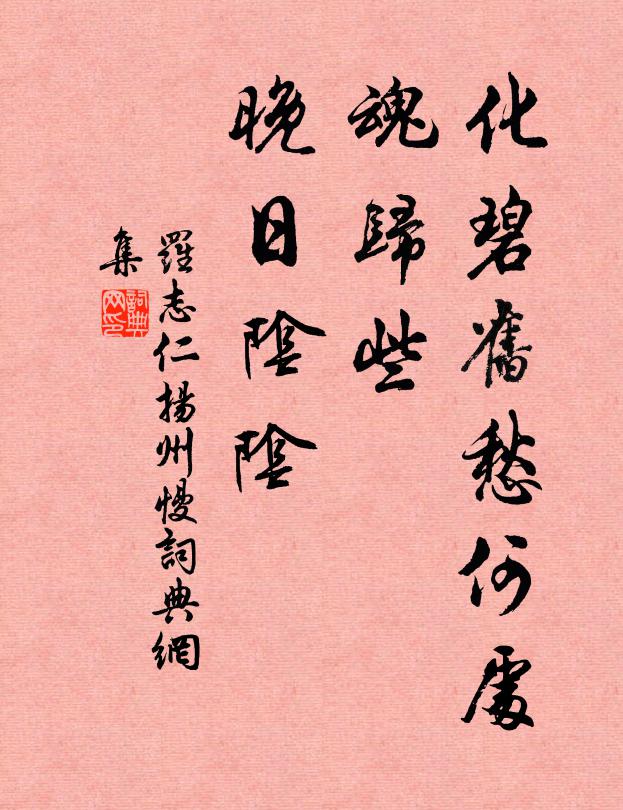 化碧舊愁何處
魂歸些
晚日陰陰
羅志仁揚州慢詞典網
集
詞典
网印